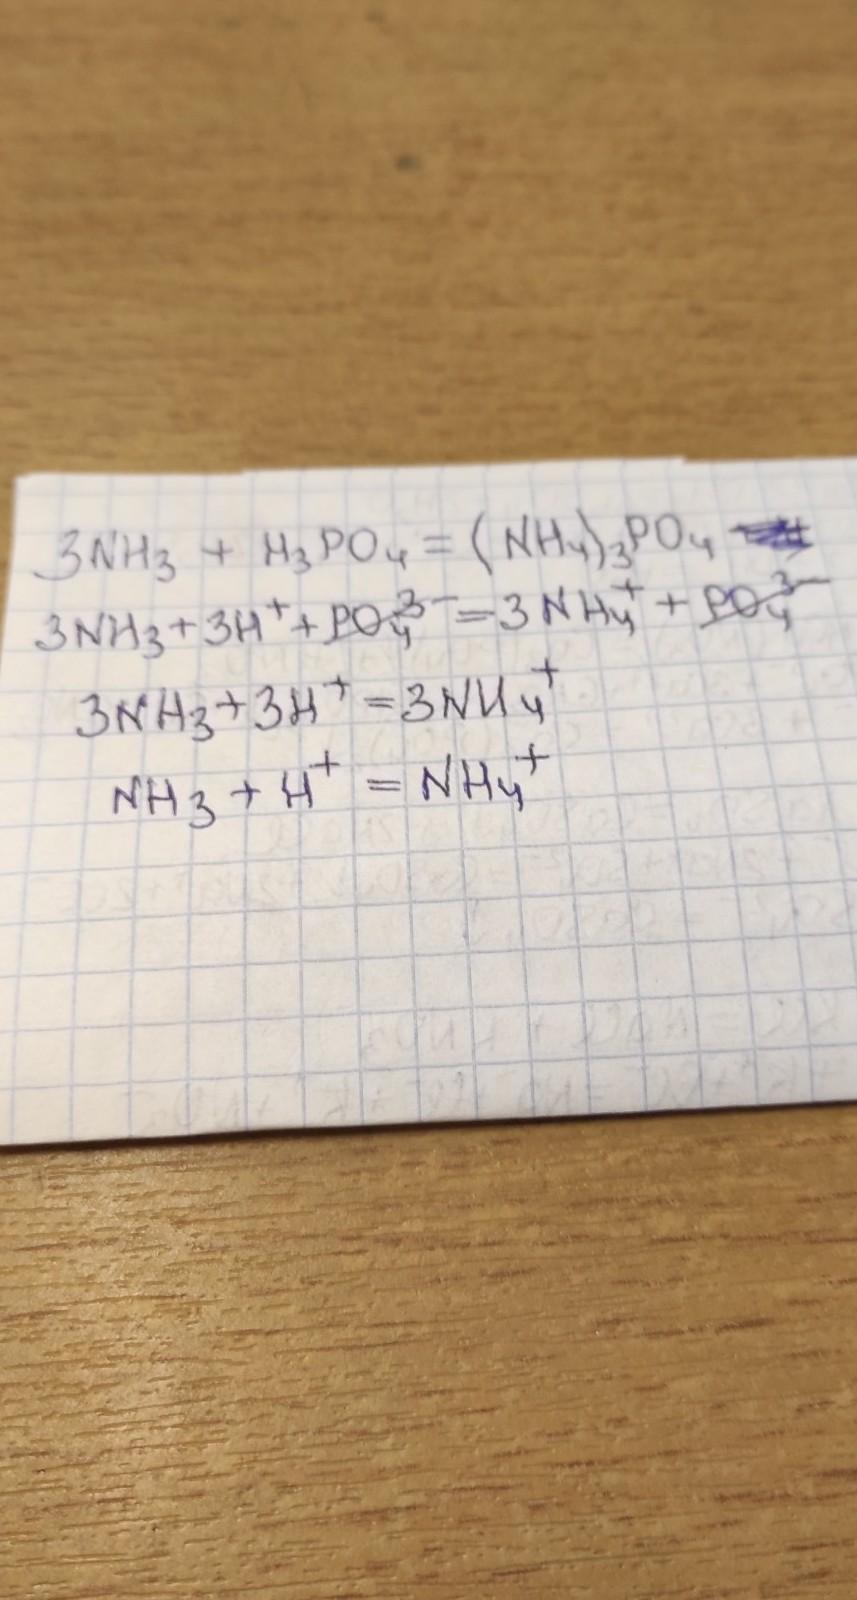 3NH₃ + H₃PO₄ = (NH₄)₃PO₄
3NH₃ + 3H⁺ + PO₄³⁻ = 3NH₄⁺ + PO₄³⁻
3NH₃ + 3H⁺ = 3NH₄⁺
NH₃ + H⁺ = NH₄⁺